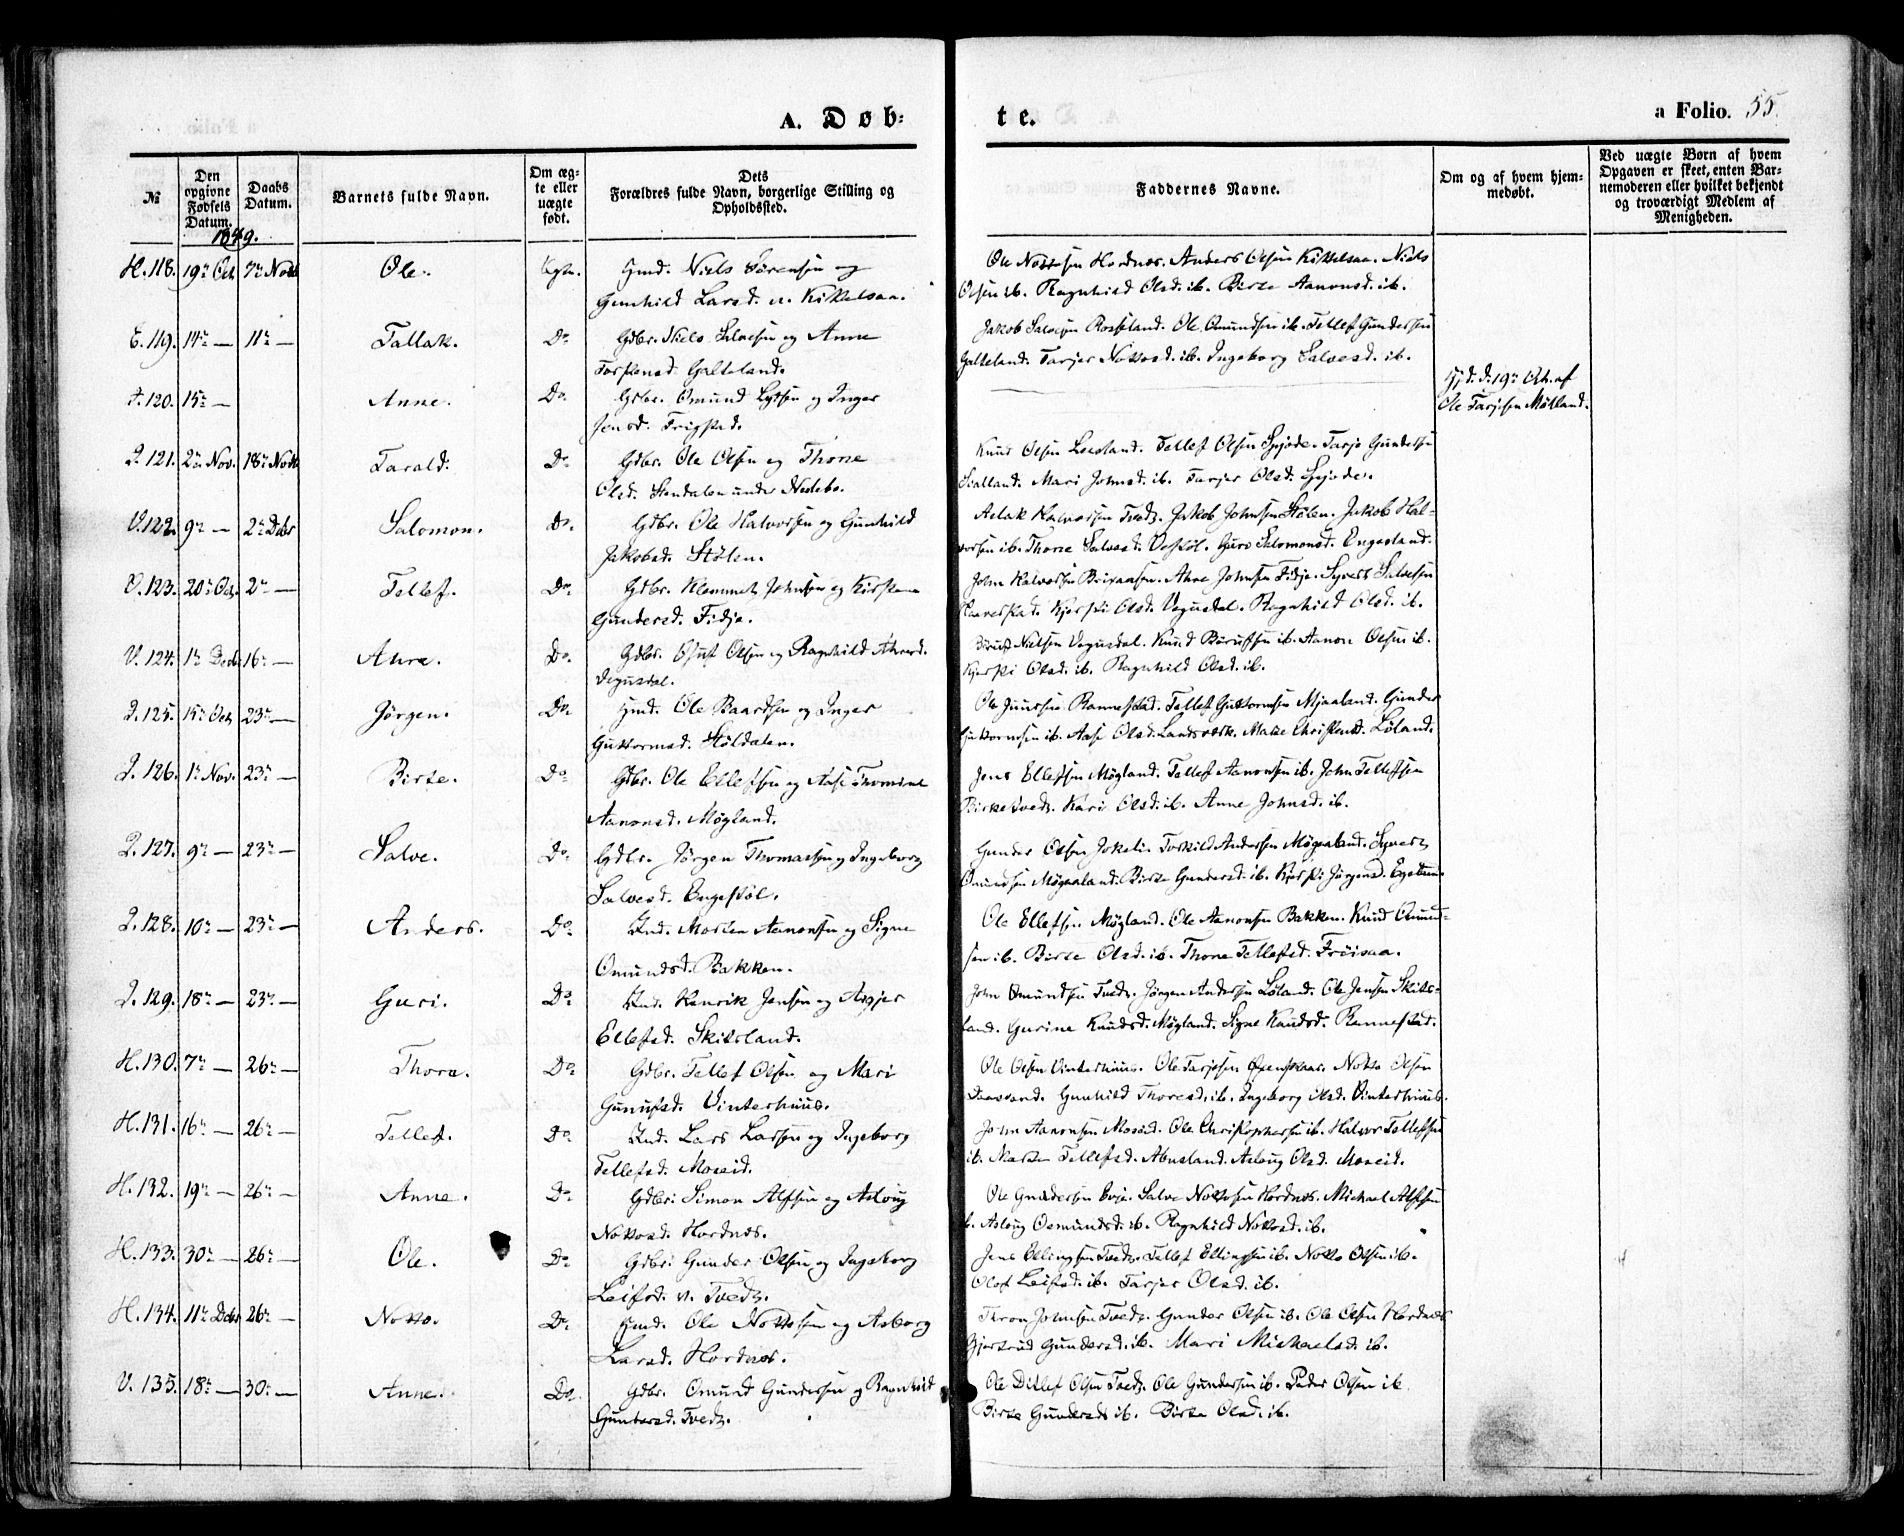 A. Døb-
te.
a Folio. 55.
№
Den opgivne Fødsels Datum.
Daabs Datum.
Barnets fulde Navn.
Om ægte eller uægte født.
Dets Forældres fulde Navn, borgerlige Stilling og Opholdssted.
Faddernes Navne.
Om og af hvem hjemmedøbt.
Ved uægte Børn af hvem Opgaven er skeet, enten Barnemoderen eller hvilket bekjendt og troværdigt Medlem af Menigheden.
1849.
H. 118. 19de Oct. 7de Ole. Niels Sørensen og
Gunhild Larsd. Kikkelsaa.
Anders Olsen Kikkelsaa. Niels
Olsen ib. Ragnhild Olsd. ib. Birte Aanonsd. ib.
E. 119. 14de — 11te — Tallak. Do. Gdbr. Niels Salvesen og Anne
Torstensd. Galteland.
Jakob Salvesen Rosseland. Ole Omundsen ib. Tellef Gundersen
Galteland. Tarjer Nottosd. ib. Ingeborg Salvesd. ib.
120. 15de — Anne. Do. Gdbr. Omund og Inger
Jensd. Frigstad.
Hj. d. d. 19de Oct. af
Ole Tarjesen Møkland.
J. 121. 2den Nov. 18de Tarald. Do. Gdbr. Ole Olsen og Thone
Olsd. Stendalen under
Knud Olsen Tellef Olsen Tarje Gundersen
Mari Johnsd. ib. Tarjer Olsd.
V. 122. 9de — 2den Decbr Salomon. Do. Gdbr. Ole Halvorsen og Gunhild
Jakobsd. Stølen.
Aslak Halvorsen Tvedt. Jakob Johnsen Stølen. Jakob Hal-
vorsen ib. Thone Salvesd. Vestøl. Guro Salomonsd. Engesland.
V. 123. 20de Oct. 2den — Tellef. Do. Gdbr. Klemmet Johnsen og Kirsten
Gundersd. Fidje.
John Halvorsen Ahne Johnsen Fidje. Syvert Salvesen
Kjersti Olsd. Vegusdal. Ragnhild Olsd. ib.
V. 124. 1ste Decbr 16de — Ahne. Do. Gdbr. Olsen og Ragnhild
Vegusdal.
Nielsen Vegusdal. Knud ib. Aanon Olsen ib.
Kjersti Olsd. ib. Ragnhild Olsd. ib.
J. 125. 15de Oct. 23de — Jørgen. Do. Hmd. Ole Baardsen og Inger
Guttormsd. Støldalen.
Ole Rannestad. Tellef Guttormsen Mjaaland. Gunder
Guttormsen ib. Aase Olsd. Landsverk. Malie Christensd. Løland.
J. 126. 1ste Nov. 23de — Birte. Do. Gdbr. Ole Ellefsen og Aase Thomine
Aanonsd. Møgland.
Jens Ellefsen Møgland. Tellef Aanonsen ib. John Tellefsen
Birketvedt. Kari Olsd. ib. Anne Johnsd. ib.
J. 127. 9de — 23de — Salve. Do. Gdbr. Jørgen Thomassen og Ingeborg
Salvesd. Engestøl.
Gunder Olsen Jokeli. Torkild Andersen Møgaaland. Syvert
Omundsen Møgaaland. Birte Gundersd. ib. Kjersti Jørgensd.
J. 128. 10de — 23de — Anders. Do. Ind. Morten Aanonsen og Signe
Omundsd. Bakken.
Ole Ellefsen Møgland. Ole Aanonsen Bakken. Knud Omund-
sen ib. Birte Olsd. ib. Thone Tellefsd. Frøisaa.
J. 129. 18de — 23de — Guri. Do. Ind. Henrik Jensen og Asjer
Ellefsd. Skitsland.
John Omundsen Tvedt. Jørgen Andersen Løland. Ole Jensen Skits-
land. Gurine Knudsd. Møgland. Signe Knudsd. Rannestad.
H. 130. 7de — 26de — Thora. Do. Gdbr. Tellef Olsen og Mari
Gunufsd. Vinterhuus.
Ole Olsen Vinterhuus. Ole Tarjesen Notto Olsen
Gunhild Thoresd. ib. Ingeborg Olsd. Vinterhuus.
H. 131. 16de — 26de — Tellef. Do. Ind. Lars Larsen og Ingeborg
Tellefsd. Moseid.
John Aanonsen Moseid. Ole Christophersen ib. Halvor Tellefsen
ib. Marte Tellefsd. Abusland. Aslaug Olsd. Moseid.
H. 132. 19de — 26de — Anne. Do. Gdbr. Simon Alfsen og Aslaug
Nottosd. Hordnes.
Ole Gundersen Evje. Salve Nottosen Hordnes. Michael Alfsen
ib. Aslaug Osmundsd. ib. Ragnhild Nottosd. ib.
H. 133. 30de — 26de — Ole. Do. Gdbr. Gunder Olsen og Ingeborg
Leifsd. n. Tvedt.
Jens Ellingsen Tvedt. Tellef Ellingsen ib. Notto Olsen ib.
Olof Leifsd. ib. Tarjer Olsd. ib.
H. 134. 11te Decbr 26de — Notto. Do. Hmd. Ole Nottosen og Asborg
Larsd. Hordnes.
Thron Johnsen Tvedt. Gunder Olsen ib. Ole Olsen Hordnes
Gjertrud Gundersd. ib. Mari Michaelsd. ib.
V. 135. 18de — 30de — Anne. Do. Gdbr. Omund Gundersen og Ragnhild
Guntersd. Tvedt.
Ole Ditlef Olsen Tvedt. Ole Gundersen ib. Peder Olsen ib.
Birte Gundersd. ib. Birte Olsd. ib.